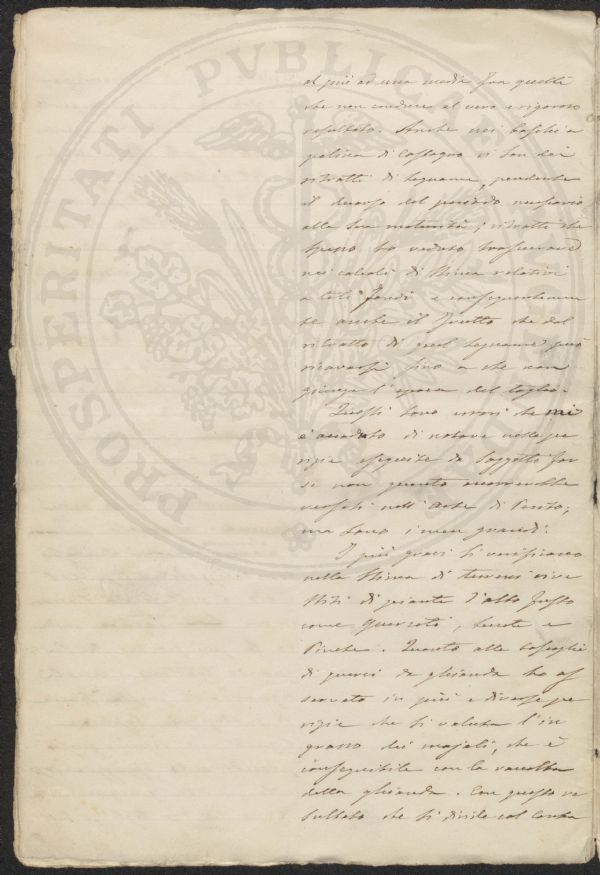 al più ad una media fra quelli
che non conduce al vero e rigoroso
resultato. Anche nei boschi a
palina di Castagno vi son dei
ritratti di legname, pendente
il decorso del periodo necessario
alla sua maturità; ritratti che
spesso ho veduto trascurare
nei calcoli di stima relativi
a tali fondi e conseguentemen
te anche il frutto che dal
ritratto di quel legname può
ricavarsi fino a che non
giunga l'epoca del taglio.
Questi sono errori che mi
è accaduto di notare nelle pe
rizie eseguite da soggetti for
se non quanto
versati nell'Arte di Perito;
ma sono i men grandi.
I più gravi si verificano
nella stima di terreni rive
stiti di piante d'alto fusto
come Querceti, e
Pinete. Quanto alle boscaglie
di querci da ghianda ho os
servato in più e diverse pe
rizie che si valuta l'in
grasso dei majali, che è
conseguibile con la raccolta
della ghianda. Con questo re
sultato che si divide col
PROSPERITATI PVBLICAE